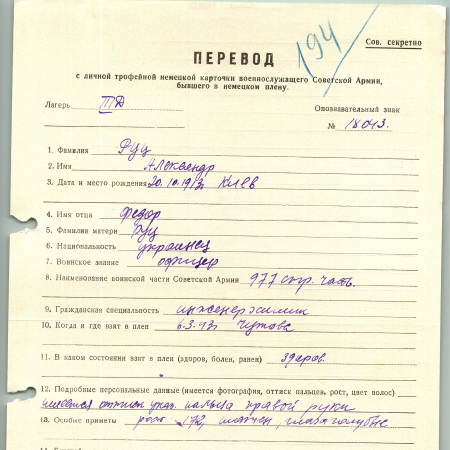 194
Сов. секретно
ПЕРЕВОД
с личной трофейной немецкой карточки военнослужащего Советской Армии,
бывшего в немецком плену.
Лагерь III Д
Опознавательный знак
№ 18043.
1. Фамилия Руц
2. Имя Александр
3. Дата и место рождения 20.10.1913г Киев
4. Имя отца Федор
5. Фамилия матери Руц
6. Национальность украинец
7. Воинское звание офицер
8. Наименование воинской части Советской Армии 977 стр. часть.
9. Гражданская специальность инженер химик
10. Когда и где взят в плен 6.3.43г.
11. В каком состоянии взят в плен (здоров, болен, ранен) здоров.
12. Подробные персональные данные (имеется фотография, оттиск пальцев, рост, цвет волос)
имеется оттиск указ. пальца правой руки
13. Особые приметы рост 172, глаза голубые